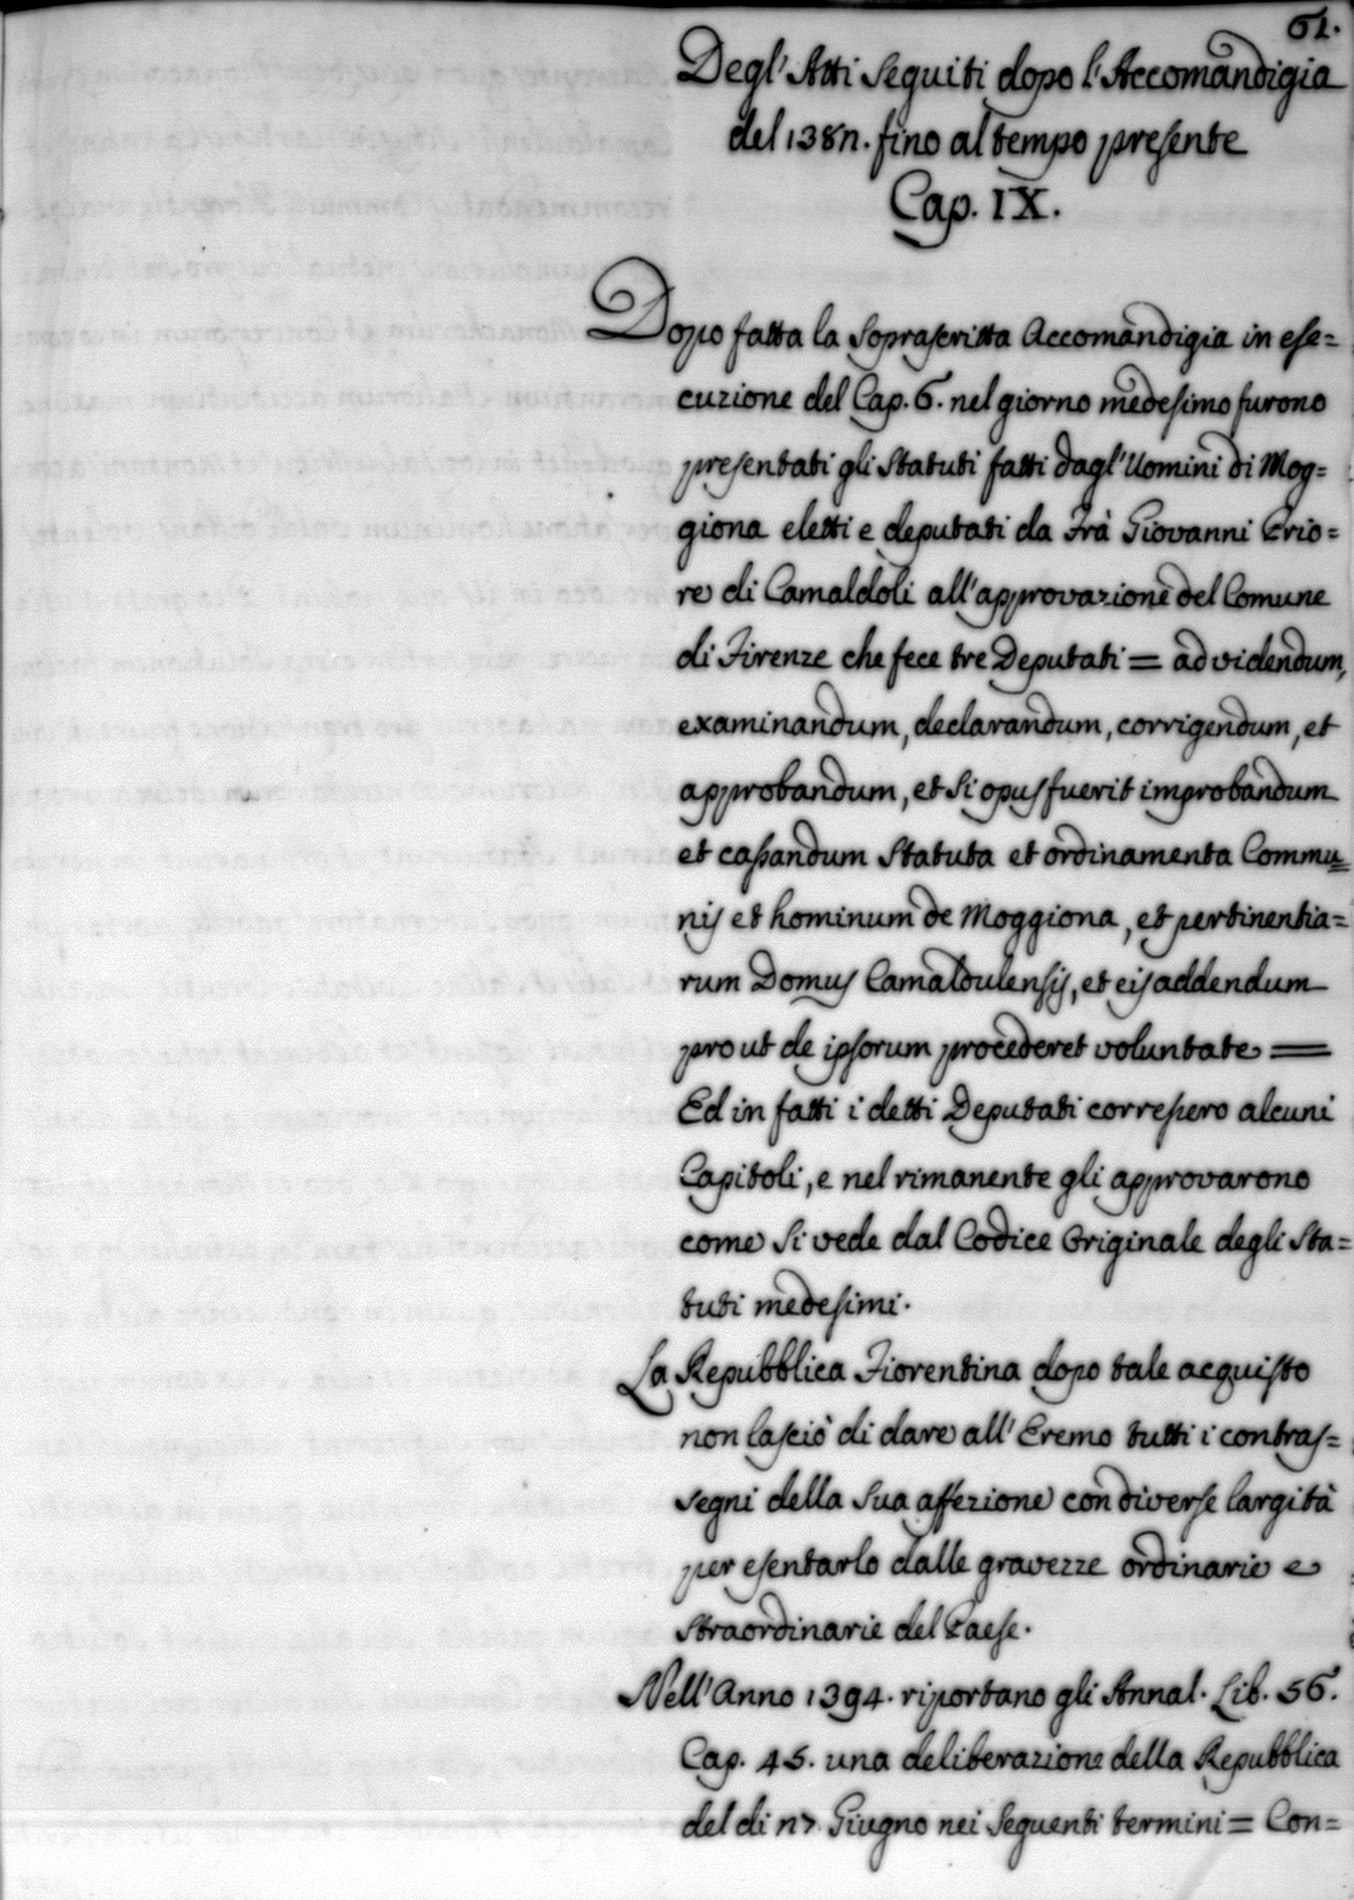 61.
Degl' Atti Seguiti dopo l'Accomandigia
del 1382. fino al tempo presente
Cap. IX.
Dopo fatta la Soprascritta Accomandigia in ese=
cuzione del Cap. 6. nel giorno medesimo furono
presentati gli Statuti fatti dagl' Uomini di Mog=
giona eletti e deputati da Frà Giovanni Prio=
re di Camaldoli all'approvazione del Comune
di Firenze che fece tre Deputati = ad videndum,
examinandum, declarandum, corrigendum, et
approbandum, et si opus fuerit improbandum
et cassandum Statuta et ordinamenta Commu=
nis et hominum de Moggiona, et pertinentia=
rum Domus Camaldulensis, et eis addendum
prout de ipsorum procederet voluntate =
Ed in fatti i detti Deputati corressero alcuni
Capitoli, e nel rimanente gli approvarono
come si vede dal Codice Originale degli Sta=
tuti medesimi.
La Repubblica Fiorentina dopo tale acquisto
non lasciò di dare all' Eremo tutti i contras=
segni della Sua affezione con diverse largità
per esentarlo dalle gravezze ordinarie e
straordinarie del Paese.
Nell' Anno 1394. riportano gli Annal. Lib. 56.
Cap. 45. una deliberazione della Repubblica
del di 27. Giugno nei Seguenti termini = Con=